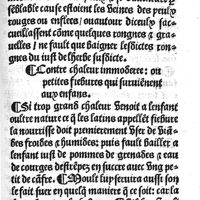 sẽblable cause estoient les Veines des peulx
rouges ou enflees / ou autour diceulx sac-
cueillassent cõme quelques rongnes & gra-
uelles / ne fault que baigner lesdictes ron-
gnes du iust de lherbe susdicte.
¶ Contre chaleur immoderee: ou
petites fiebures qui suruiẽnent
aux enfans.
¶ Si trop grand chaleur Venoit a lenfant
oultre nature ce q̃ les latins appellẽt fiebure
la nourrisse doit premierement Vser de Viã-
des froides & humides; puis fault bailler a
lenfant iust de pommes de grenades & eau
de courges destrẽpez en succre auec Vng pe-
tit de cãfre. ¶ Moult luy seruira aussi son
le fait fuer en quelq̃ maniere q̃ ce soit: car la